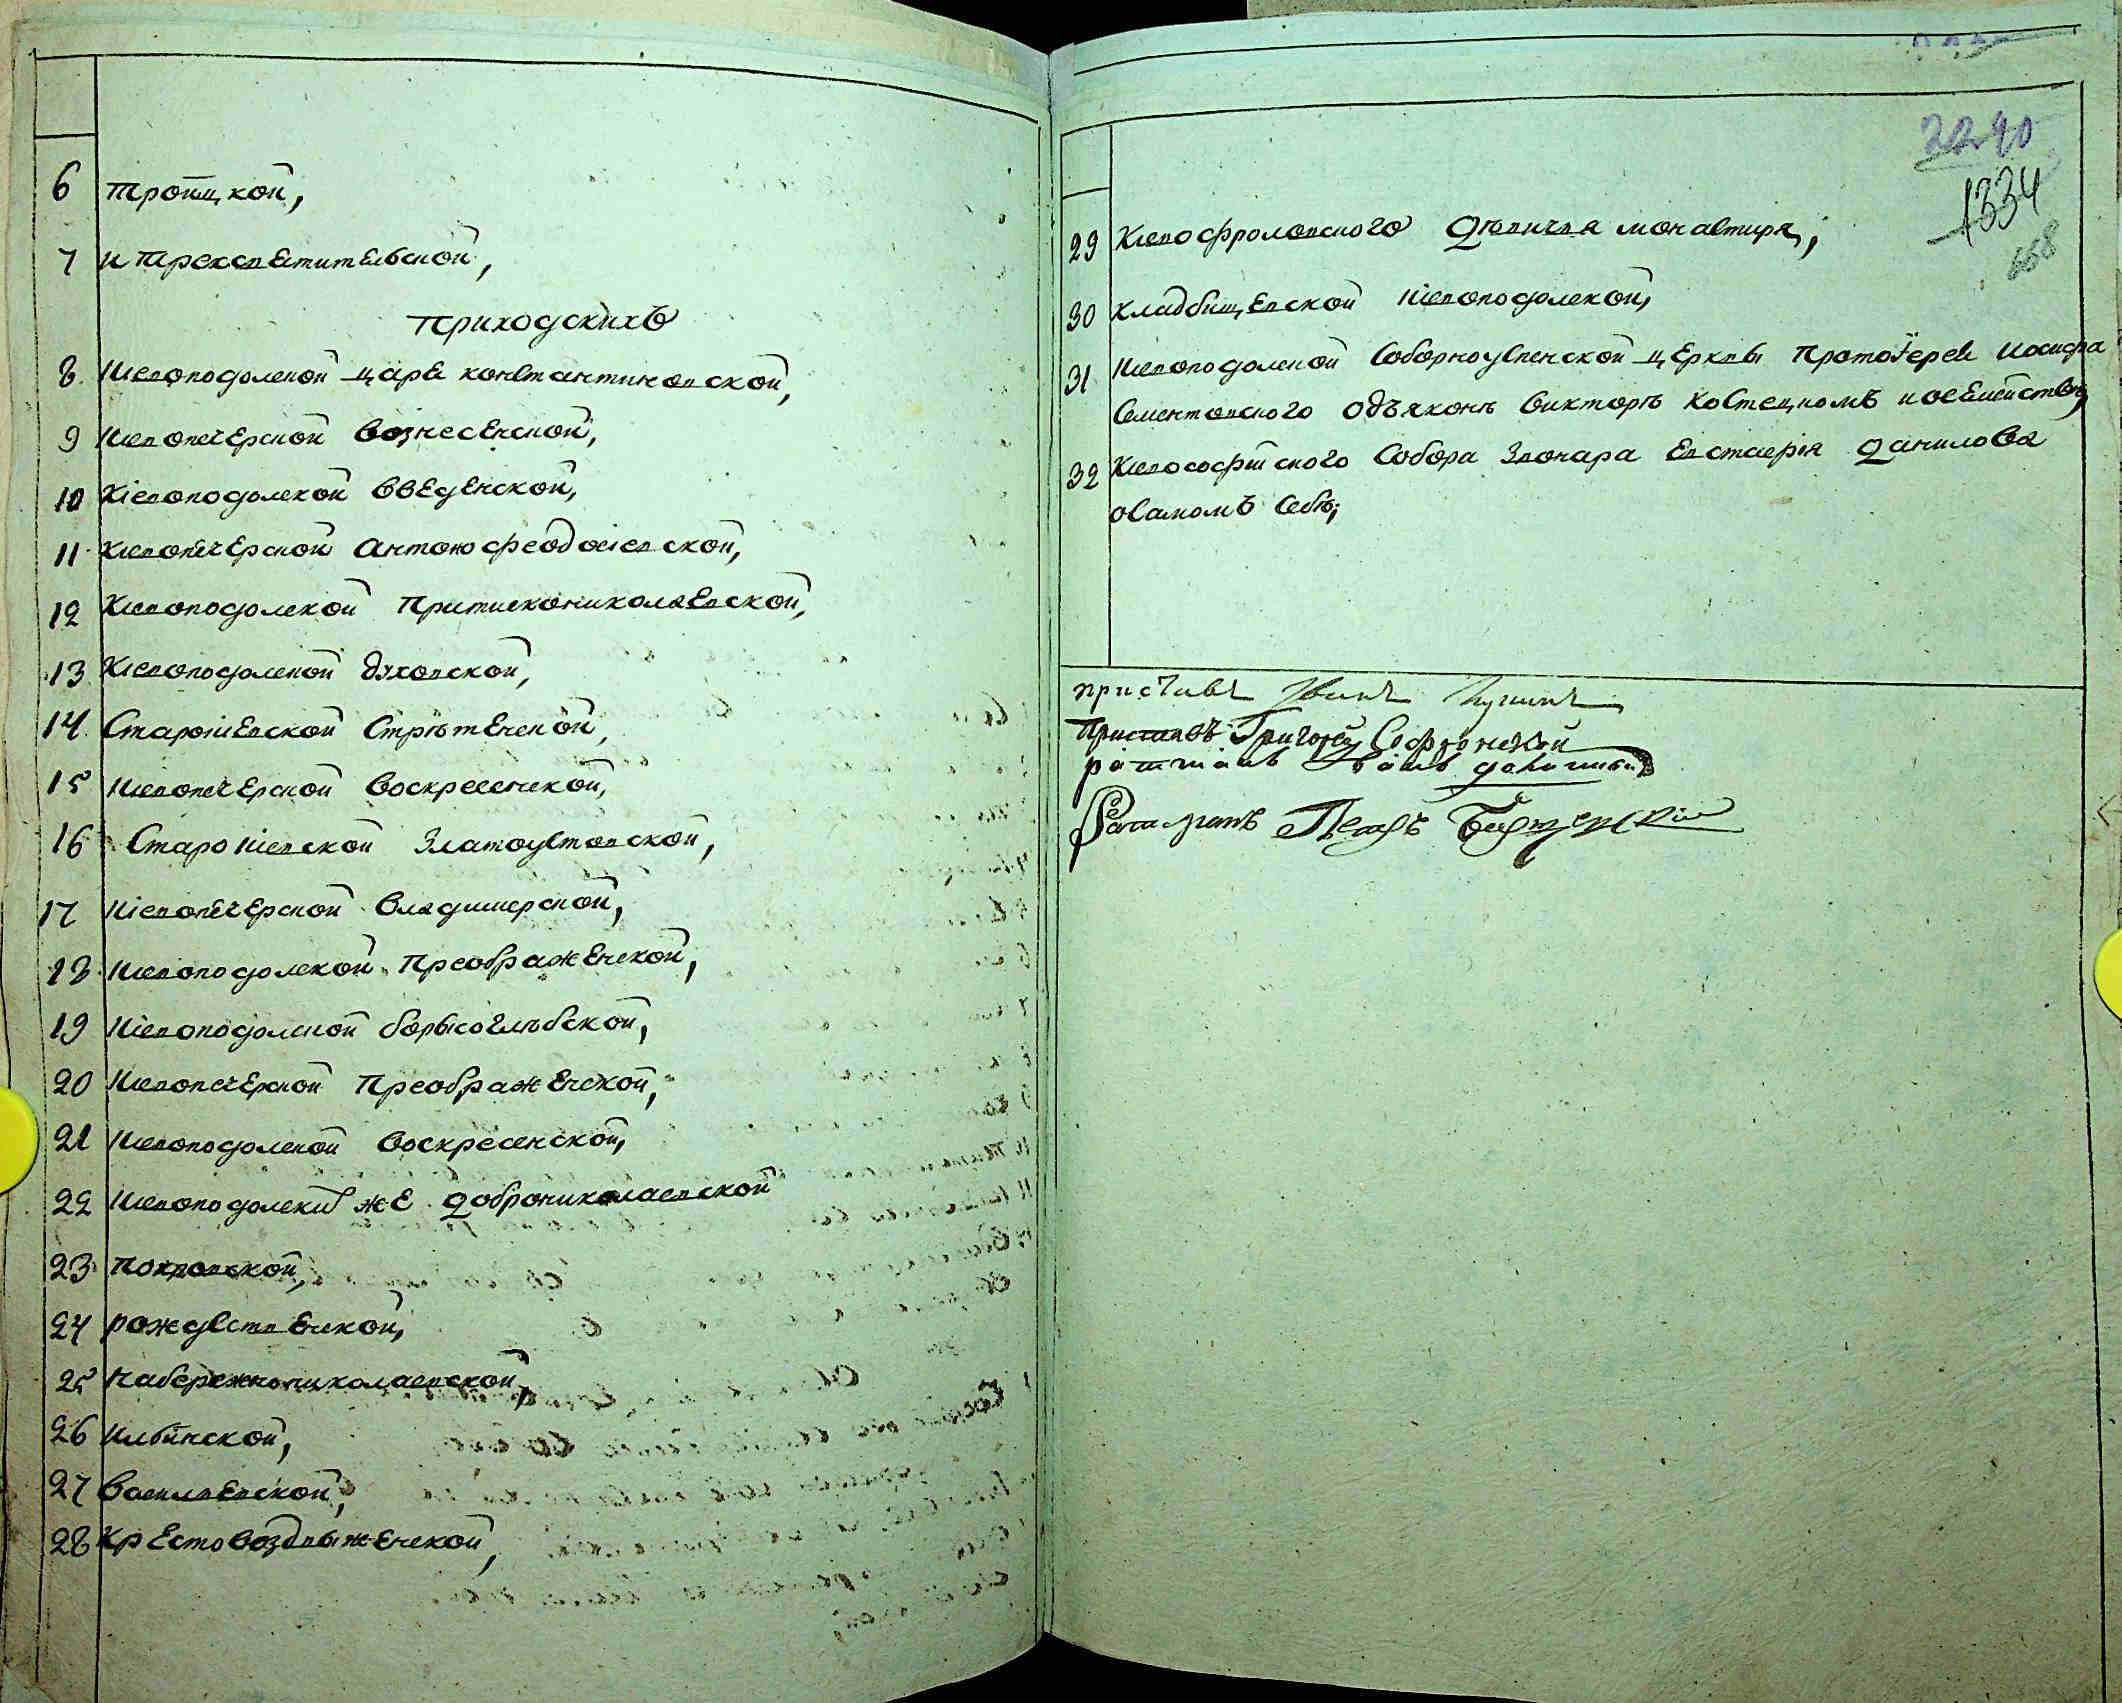 6 Троицкой,
7 и Трехсвятительской,
Приходскихъ
8 Кіевоподолской царе константиновской,
9 Кіевопечерской вознесенской,
10 Кіевоподолской введенской,
11 Кіевопечерской антонофеодосіевской,
12 Кіевоподолской Притисконикалаевской,
13 Кіевоподолской духовской,
14 Старокіевской Стрѣтенской,
15 Кіевопечерской воскресенской,
16 Старокіевской Златоустовской,
17 Кіевопечерской владимерской,
18 Кіевоподолской Преображенской,
19 Кіевоподолской борысоглѣбской,
20 Кіевопечерской Преображенской,
21 Кіевоподолской воскресенской,
22 Кіевоподолской же доброниколаевской
23 Покровской,
24 рождественской,
25 набережнониколаевской,
26 илѣинской,
27 василевской,
28 крестовоздвиженской,
2240
1334
668
29 Кіевофроловского девичья монастиря,
30 кладбищевской Кіевоподолской,
31 Кіевоподолской Соборноуспенской церкви Протоіерей иосифа
Сементовского одъяконѣ викторѣ костецкомъ и осемействѣ,
32 Кіевософійского Собора Звонара евстаерія данилова
осамомъ себѣ;
приставъ Иванъ
Приставъ Григорей Софронский
ратманъ Иванъ
Ратманъ Петръ